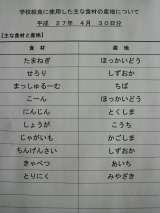 学校給食に使用した主な食材の産地について
平成 27年 4月 30日分
【主な食材と産地】
食材 産地
たまねぎ ほっかいどう
せろり しずおか
まっしゅるーむ ちば
こーん ほっかいどう
にんじん とくしま
しょうが こうち
じゃがいも かごしま
ちんげんさい しずおか
きゃべつ あいち
とりにく みやざき